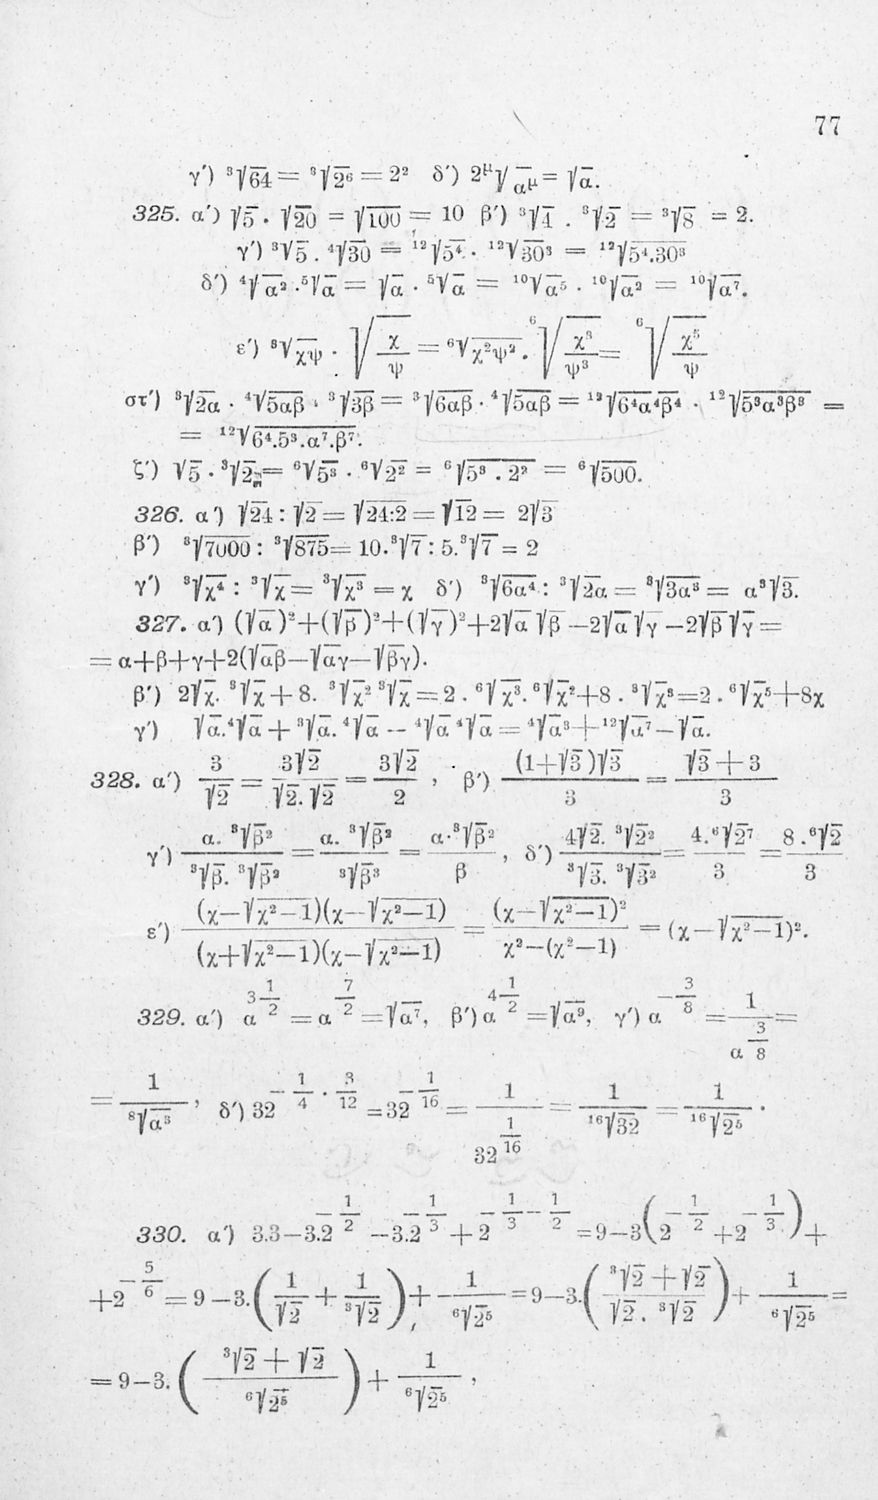 77
γ') ³√64 = ³√2⁶ = 2² δ') 2μ√αμ = √α.
325. α') √5 . √20 = √100 = 10 β') ³√4 . ³√2 = ³√8 = 2.
γ') ³√5 . ⁴√30 = ¹²√5⁴ . ¹²√30³ = ¹²√5⁴.30³
δ') ⁴√α² . ⁵√α = √α . ⁵√α = ¹⁰√α⁵ . ¹⁰√α² = ¹⁰√α⁷.
ε') ³√χψ . √χ/ψ = ⁶√χ²ψ² . ⁶√χ³/ψ³ = ⁶√χ⁵/ψ
στ') ³√2α . ⁴√5αβ . ³√3β = ³√6αβ . ⁴√5αβ = ¹²√6⁴α⁴β⁴ . ¹²√5³α³β³ =
= ¹²√6⁴.5³.α⁷.β⁷.
ζ') √5 . ³√2 = ⁶√5³ . ⁶√2² = ⁶√5³ . 2² = ⁶√500.
326. α') √24 : √2 = √24:2 = √12 = 2√3
β') ³√7000 : ³√875 = 10.³√7 : 5.³√7 = 2
γ') ³√χ⁴ : ³√χ = ³√χ³ = χ δ') ³√6α⁴ : ³√2α = ³√3α³ = α³√3.
327. α') (√α)²+(√β)²+(√γ)²+2√α √β −2√α √γ −2√β √γ =
= α+β+γ+2(√αβ−√αγ−√βγ).
β') 2√χ. ³√χ + 8. ³√χ² ³√χ = 2 . ⁶√χ³. ⁶√χ²+8 . ³√χ³=2 . ⁶√χ⁵+8χ
γ') √α.⁴√α + ³√α. ⁴√α − ⁴√α ⁴√α = ⁴√α³ + ¹²√α⁷ − √α.
328. α') 3/√2 = 3√2/√2.√2 = 3√2/2 , β') (1+√3)√3/3 = √3+3/3
γ') α. ³√β²/³√β. ³√β² = α. ³√β²/³√β³ = α.³√β²/β , δ') 4√2. ³√2²/³√3. ³√3² = 4.⁶√2⁷/3 = 8.⁶√2/3
ε') (χ−√χ²−1)(χ−√χ²−1)/(χ+√χ²−1)(χ−√χ²−1) = (χ−√χ²−1)²/χ²−(χ²−1) = (χ−√χ²−1)².
329. α') α^3 1/2 = α^7/2 = √α⁷, β') α^4 1/2 = √α⁹, γ') α^−3/8 = 1/α^3/8 =
= 1/⁸√α³ , δ') 32^−1/4 . 3/12 = 32^−1/16 = 1/32^1/16 = 1/¹⁶√32 = 1/¹⁶√2⁵ .
330. α') 3.3−3.2^−1/2 −3.2^−1/3 + 2^−1/3−1/2 = 9−3(2^−1/2 + 2^−1/3) +
+2^−5/6 = 9−3.(1/√2 + 1/³√2) + 1/⁶√2⁵ = 9−3.(³√2+√2/√2 . ³√2) + 1/⁶√2⁵ =
= 9−3.(³√2+√2/⁶√2⁵) + 1/⁶√2⁵ ,